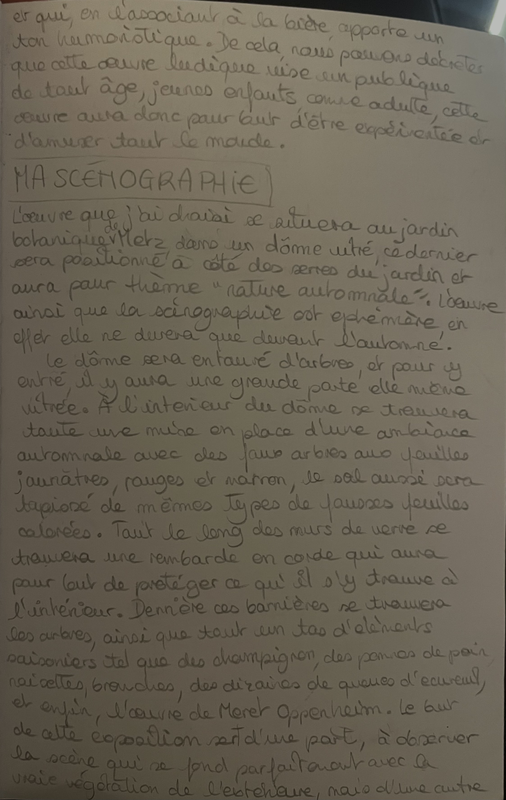 et qui, en l'associant à la bière, apporte un
ton humoristique. De cela, nous pouvons déduire
que cette œuvre ludique vise un publique
de tout âge, jeunes enfants comme adulte, cette
œuvre aura donc pour but d'être expérimentée et
d'amuser tout le monde.
MA SCÉNOGRAPHIE
L'œuvre que j'ai choisi se situera au jardin
botanique de Metz dans un dôme vitré, ce dernier
sera positionné à côté des serres du jardin et
aura pour thème "nature automnale". L'œuvre
ainsi que la scénographie est éphémère, en
effet elle ne durera que durant l'automne.
Le dôme sera entouré d'arbres, et pour y
entré il y aura une grande porte elle même
vitrée. À l'interieur du dôme se trouvera
toute une mise en place d'une ambiance
automnale avec des faux arbres aux feuilles
jaunâtres, rouges et marron, le sol aussi sera
tapissé de mêmes types de fausses feuilles
colorées. Tout le long des murs de verre se
trouvera une rembarde en corde qui aura
pour but de protéger ce qu'il s'y trouve à
l'intérieur. Derrière ces barrières se trouvera
les arbres, ainsi que tout un tas d'éléments
saisoniers tel que des champignon, des pommes de pain,
noisettes, branches, des dizaines de queues d'écureuil,
et enfin, l'œuvre de Meret Oppenheim. Le but
de cette exposition sert d'une part, à observer
la scène qui se fond parfaitement avec la
vraie végétation de l'exterieure, mais d'une autre